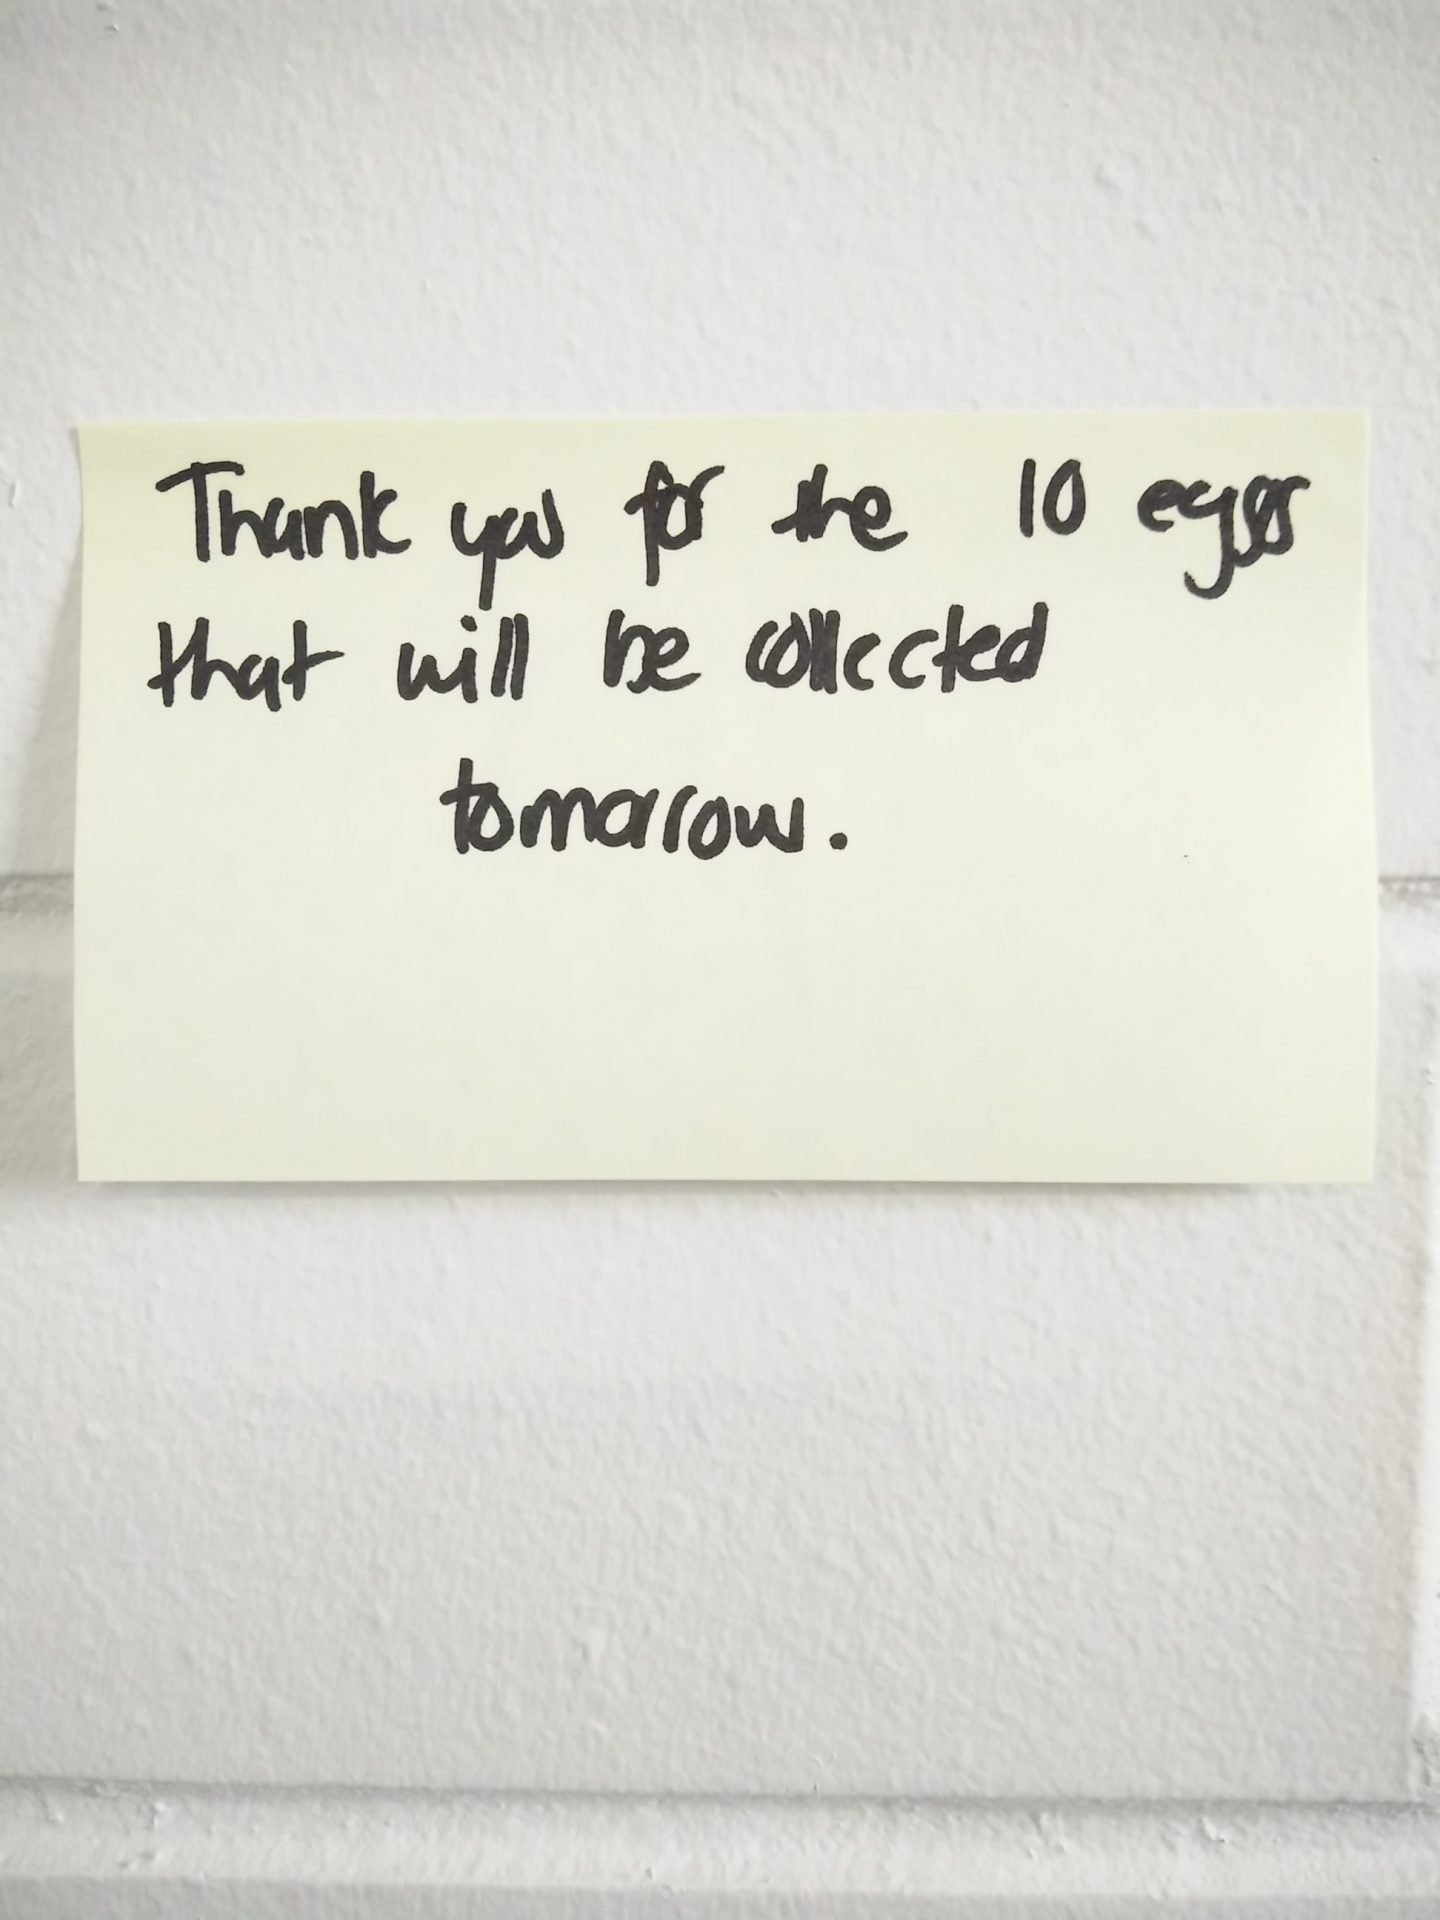 Thank you for the 10 eggs
that will be collected
tomarrow.